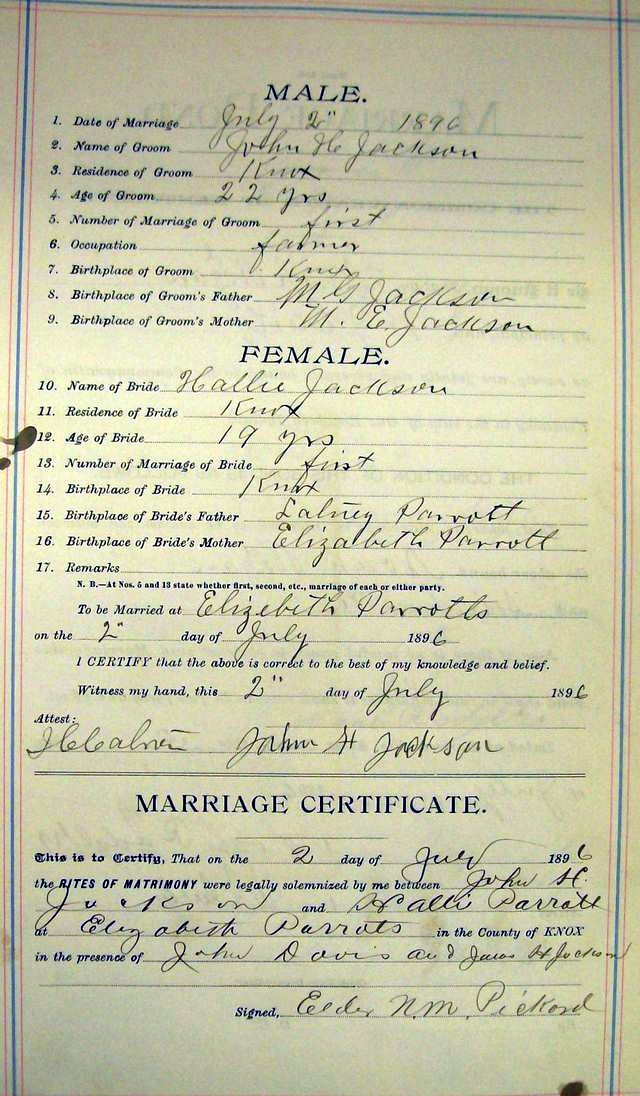 MALE.
1. Date of Marriage July 2" 1896
2. Name of Groom John H Jackson
3. Residence of Groom Knox
4. Age of Groom 22 yrs
5. Number of Marriage of Groom first
6. Occupation farmer
7. Birthplace of Groom Knox
8. Birthplace of Groom's Father M G Jackson
9. Birthplace of Groom's Mother M. E. Jackson
FEMALE.
10. Name of Bride Hallie Jackson
11. Residence of Bride Knox
12. Age of Bride 19 yrs
13. Number of Marriage of Bride first
14. Birthplace of Bride Knox
15. Birthplace of Bride's Father Parrott
16. Birthplace of Bride's Mother Elizabeth Parrott
17. Remarks
N. B.—At Nos. 5 and 13 state whether first, second, etc., marriage of each or either party.
To be Married at Elizebeth Parrotts
on the 2" day of July 1896
I CERTIFY that the above is correct to the best of my knowledge and belief.
Witness my hand, this 2" day of July 1896
Attest:
John H Jackson
MARRIAGE CERTIFICATE.
This is to Certify, That on the 2 day of July 1896
the RITES OF MATRIMONY were legally solemnized by me between John H.
Jackson and Halli Parrott
at Elizabeth Parrots in the County of KNOX
in the presence of John Davis and H Jackson
Signed, Elder N. M. Pickord